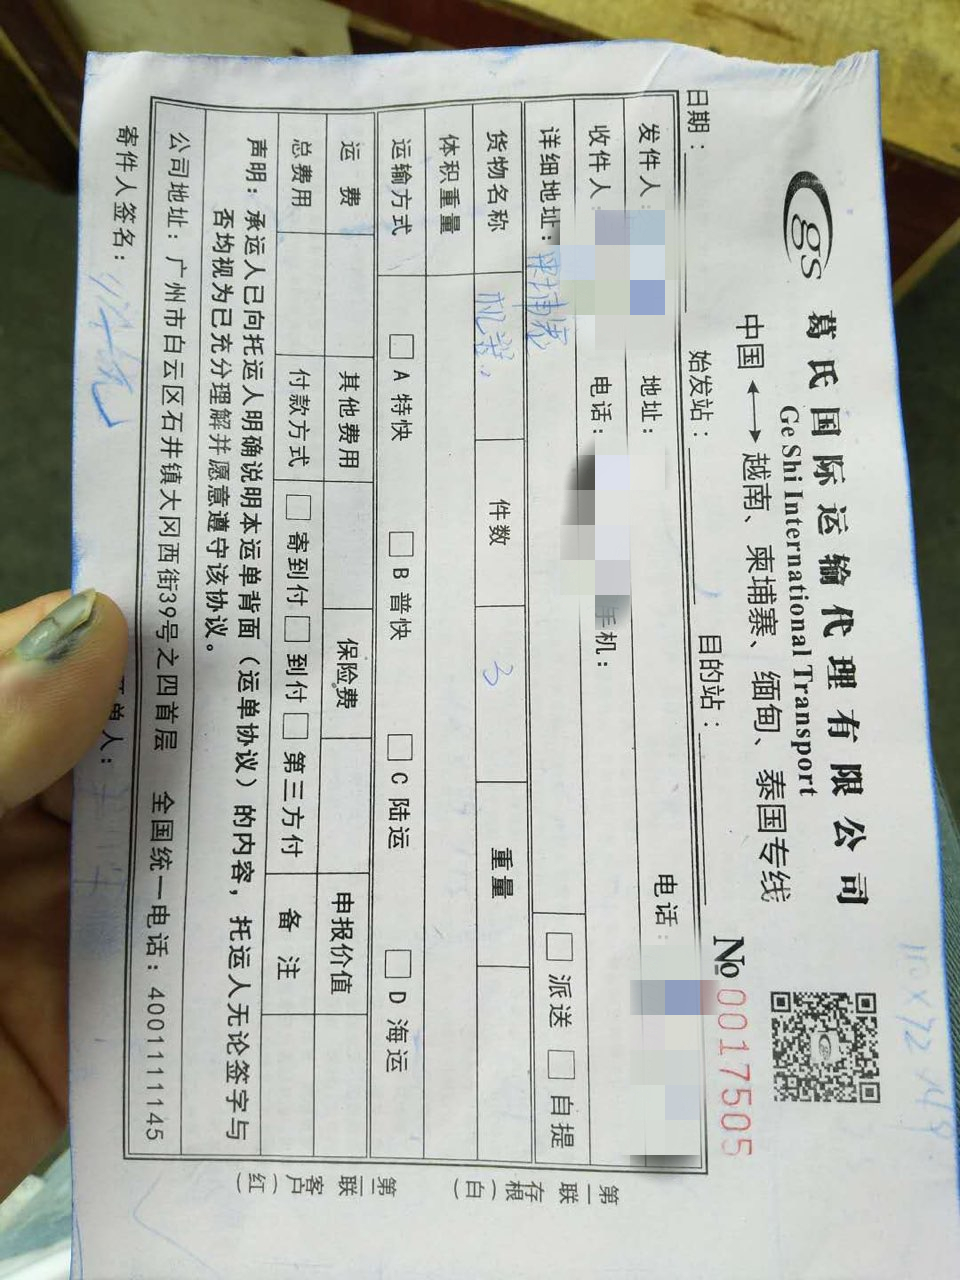 gs
葛氏国际运输代理有限公司
Ge Shi International Transport
中国 ←→ 越南、柬埔寨、缅甸、泰国专线
110×72×49
№ 0017505
日期： 始发站： 目的站：
发件人 地址： 电话：
收件人 电话： 手机：
详细地址： 柬埔寨 □派送 □自提
货物名称 机器 件数 3 重量
体积重量
运输方式 □A 特快 □B 普快 □C 陆运 □D 海运
运费 其他费用 保险费 申报价值
总费用 付款方式 □寄到付 □到付 □第三方付 备注
声明：承运人已向托运人明确说明本运单背面（运单协议）的内容，托运人无论签字与
否均视为已充分理解并愿意遵守该协议。
公司地址：广州市白云区石井镇大冈西街39号之四首层 全国统一电话：4001111145
寄件人签名： 单人：
第一联 存根（白）
第二联 客户（红）